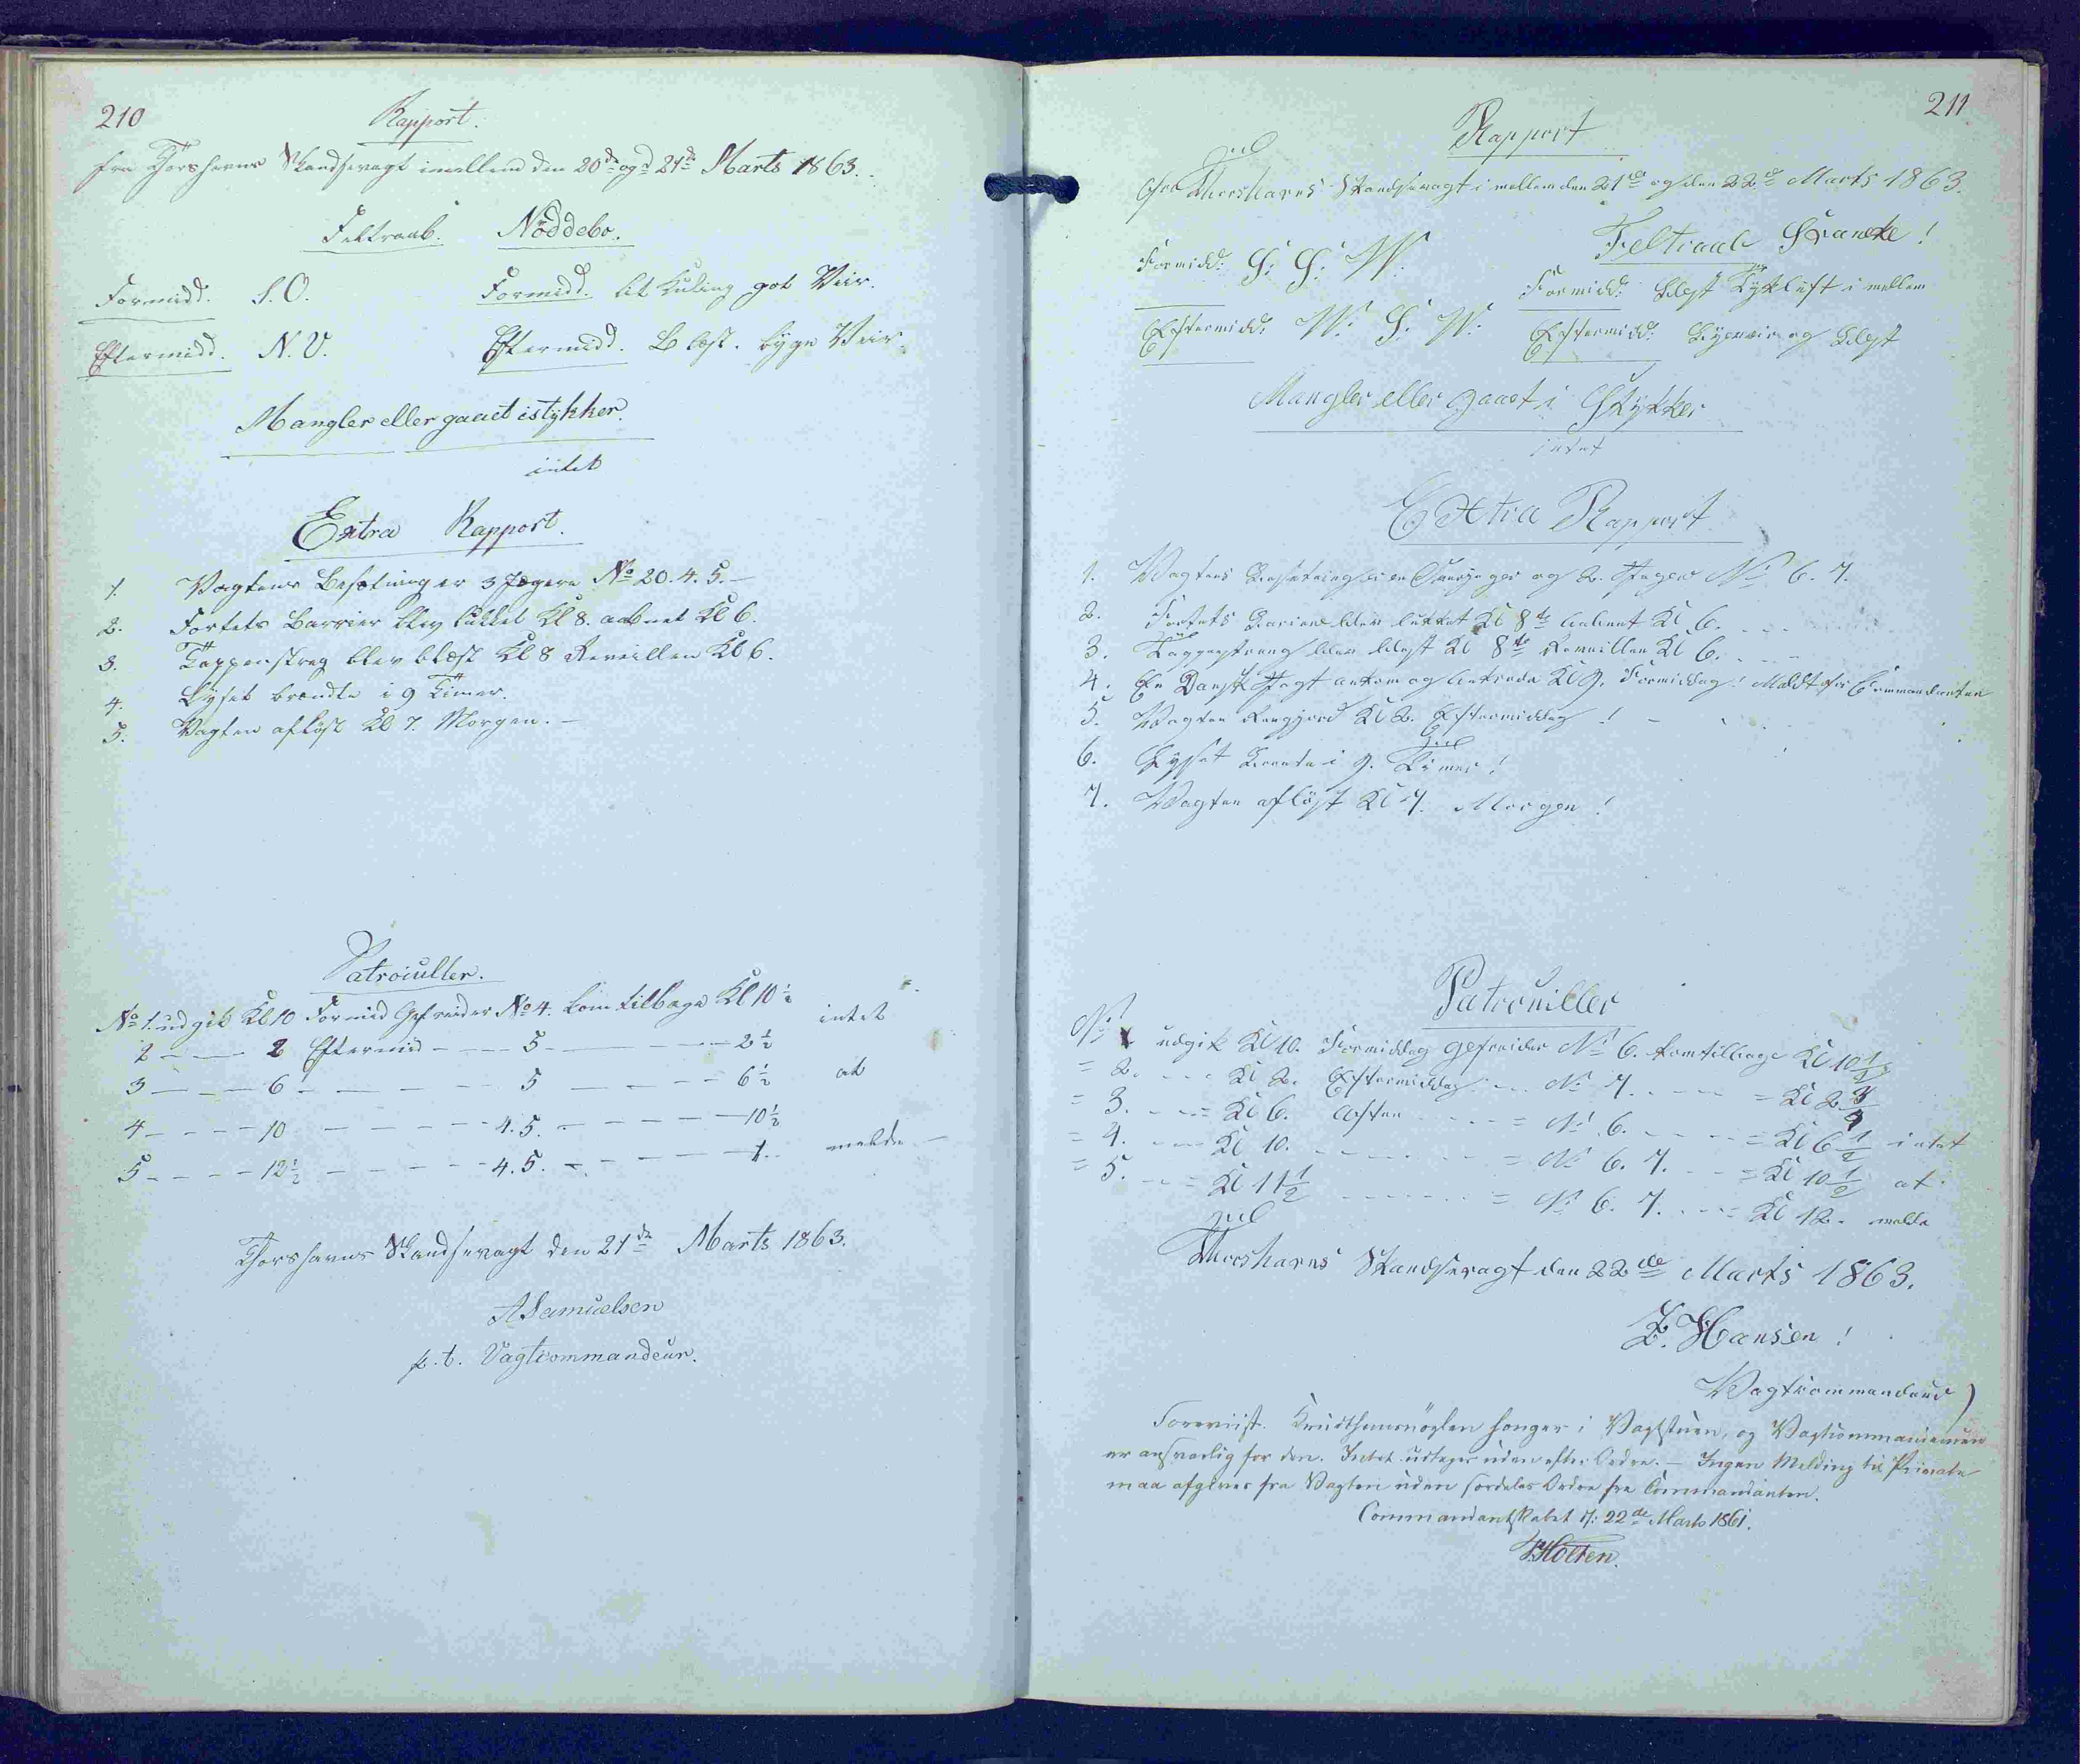 210
Rapport.
fra Thorshavns Skandsevagt imellem den 20de og 21de Marts 1863.
Feltraab. Nöddebo.
Formidd. S.O. Formidd. let Kuling got Veir.
Eftermidd. N.V. Eftermidd. Blæst. byge Veir.
Mangler eller gaaet istykker.
intet
Extra Rapport.
1. Vagtens Besætning er 3 Jægere No 20. 4. 5. —
2. Fortets Barrier blev lukket Kl 8. aabnet Kl 6.
3. Tappenstreg blev blæst Kl 8 Reveillen Kl 6.
4. Lyset brændte i 9 Timer.
5. Vagten afløst Kl 7. Morgen. —
Patrouller.
No 1. udgik Kl 10 Formid Gefreider No 4. kom tilbage Kl 10 1/2
2 — — 2 Eftermid — — 5 — — 2 1/2 intet
3 — — 6 — — 5 — — 6 1/2 at
4 — — 10 — — 4. 5. — — 10 1/2
5 — — 12 1/2 — — 4. 5. — — 1. melde —
Thorshavns Skandsevagt den 21de Marts 1863.
A Samuelsen
p. t. Vagtcommandeur.
211.
Rapport
Fra Thorshavns Skandsevagt i mellem den 21de og den 22de Marts 1863.
Feltraab Skancke!
Formidd: S: S: W: Formidd: Blæst Tyk luft i mellem
Eftermidd: W: S: W: Eftermidd: Bygeveir og Blæst
Mangler eller gaaet i Stykker
intet
Extra Rapport
1. Vagtens Besætning er en og 2. Jæger No 6. 7.
2. Fortets Bariere blev lukket Kl 8te aabnet Kl 6.
3. Tappenstreng blev blæst Kl 8te Reveillen Kl 6.
4. En Dansk Jagt ankom og ankrede Kl 9. Formiddag! Meldt for Commandanten
5. Vagten Rengjord Kl 2. Eftermiddag!
6. Lysset Brænte i 9. Timer!
7. Vagten afløst Kl 7. Morgen!
Patrouiller
No 1 udgik Kl 10. Formiddag gefreider No 6. kom tilbage Kl 10 1/2
= 2. — Kl 2. Eftermiddag — No 7. — = Kl 2 3/4
= 3. — = Kl 6. Aften — = No 6. — = Kl 6 1/2 intet
= 4. — Kl 10. — = No 6. 7. — = Kl 10 1/2 at
= 5. — = Kl 11 1/2 — = No 6. 7. — = Kl 12. melde
Thorshavns Skandsevagt den 22de Marts 1863.
Z. Hansen!
Vagtcommandeur
Foreviist. Krudthuusnøglen hænger i Vagtstuen, og Vagtcommandeuren
er ansvarlig for den. Intet udtages uden efter Ordre. — Ingen Melding til Private
maa afgives fra Vagten uden særdeles Ordre fra Commandanten.
Commandantskabet d: 22de Marts 1861.
HHolten.